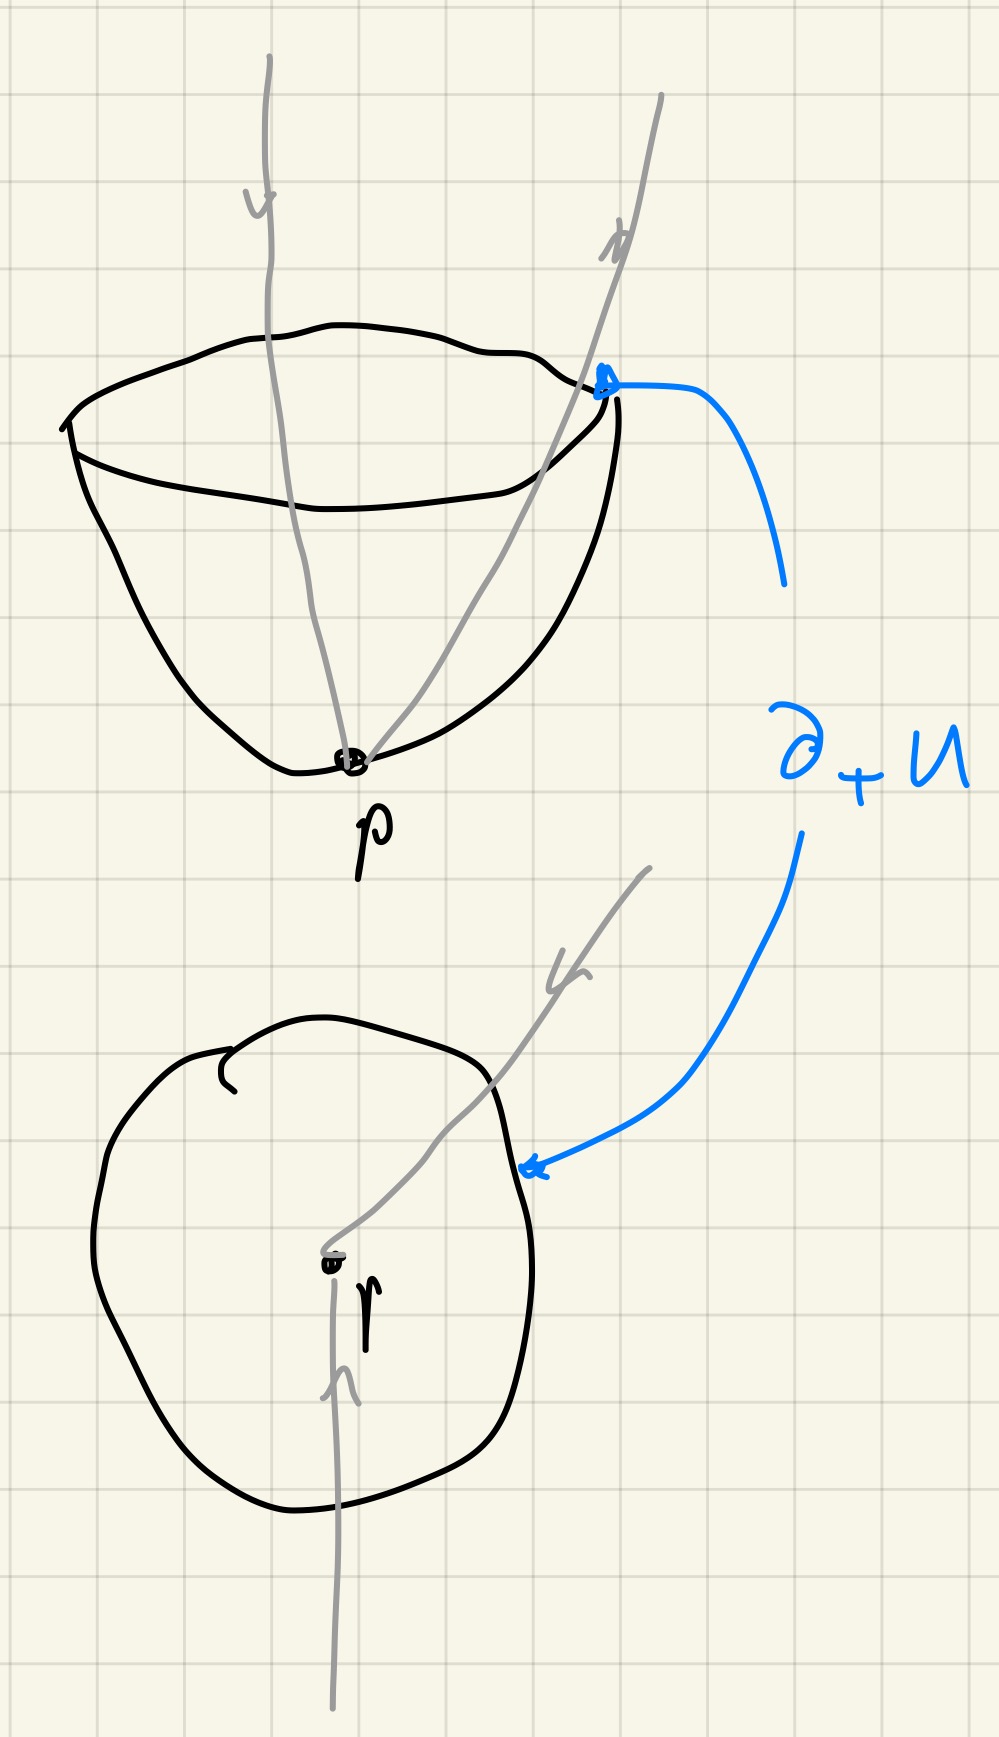 p
∂₊ U
r